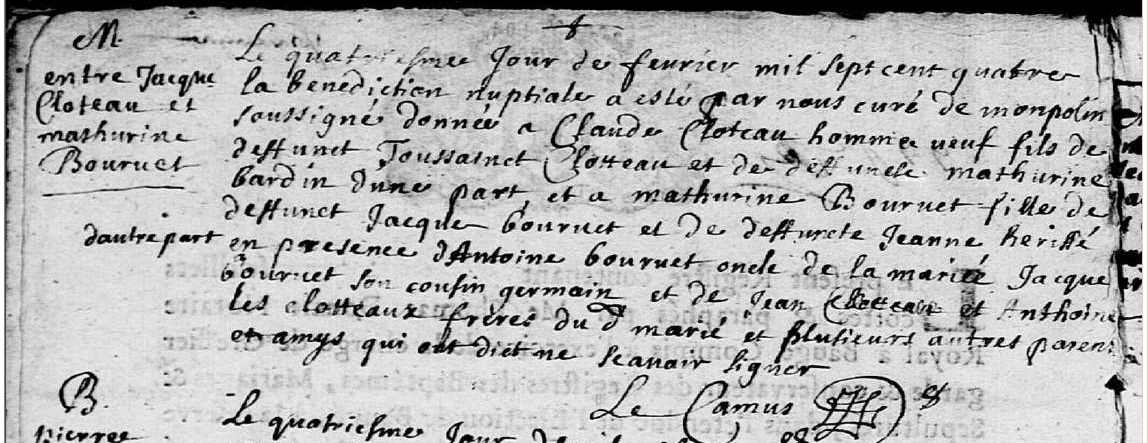 M.
entre Jacque
Cloteau et
mathurine
Bouruet
Le quatriesme Jour de fevrier mil sept cent quatre
la benediction nuptiale a esté par nous curé de monpolin
soussigné donnée a Claude Cloteau homme veuf fils de
deffunct Toussainct Clotteau et de deffuncte mathurine
bardin d'une part, et a mathurine Bouruet fille de
deffunct Jacque bouruet et de deffuncte Jeanne heriffé
dautre part en presence d'Antoine bouruet oncle de la mariée Jacque
bouruet son cousin germain et de Jean Clotteau et Anthoine
les clotteaux freres du d marié et plusieurs autres parens
et amys qui ont dict ne scavoir signer
Le Camus
B.
pierre
Le quatriesme Jour